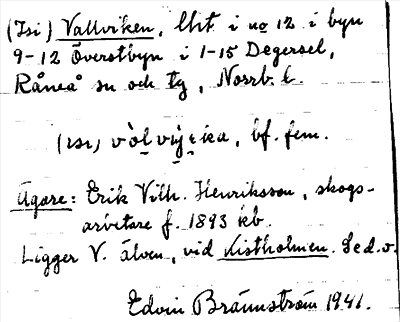 (Isi) Vallviken, lht i no 12 i byn
9-12 Överstbyn i 1-15 Degersel,
Råneå sn och tg, Norrb. l.
(ısı) vòl vı̨́ka, bf. fem.
Ägare: Erik Vilh. Henriksson, skogs-
arbetare f. 1893 kb.
Ligger V. älven, vid Kistholmen. Se d.o.
Edvin Brännström 1941.